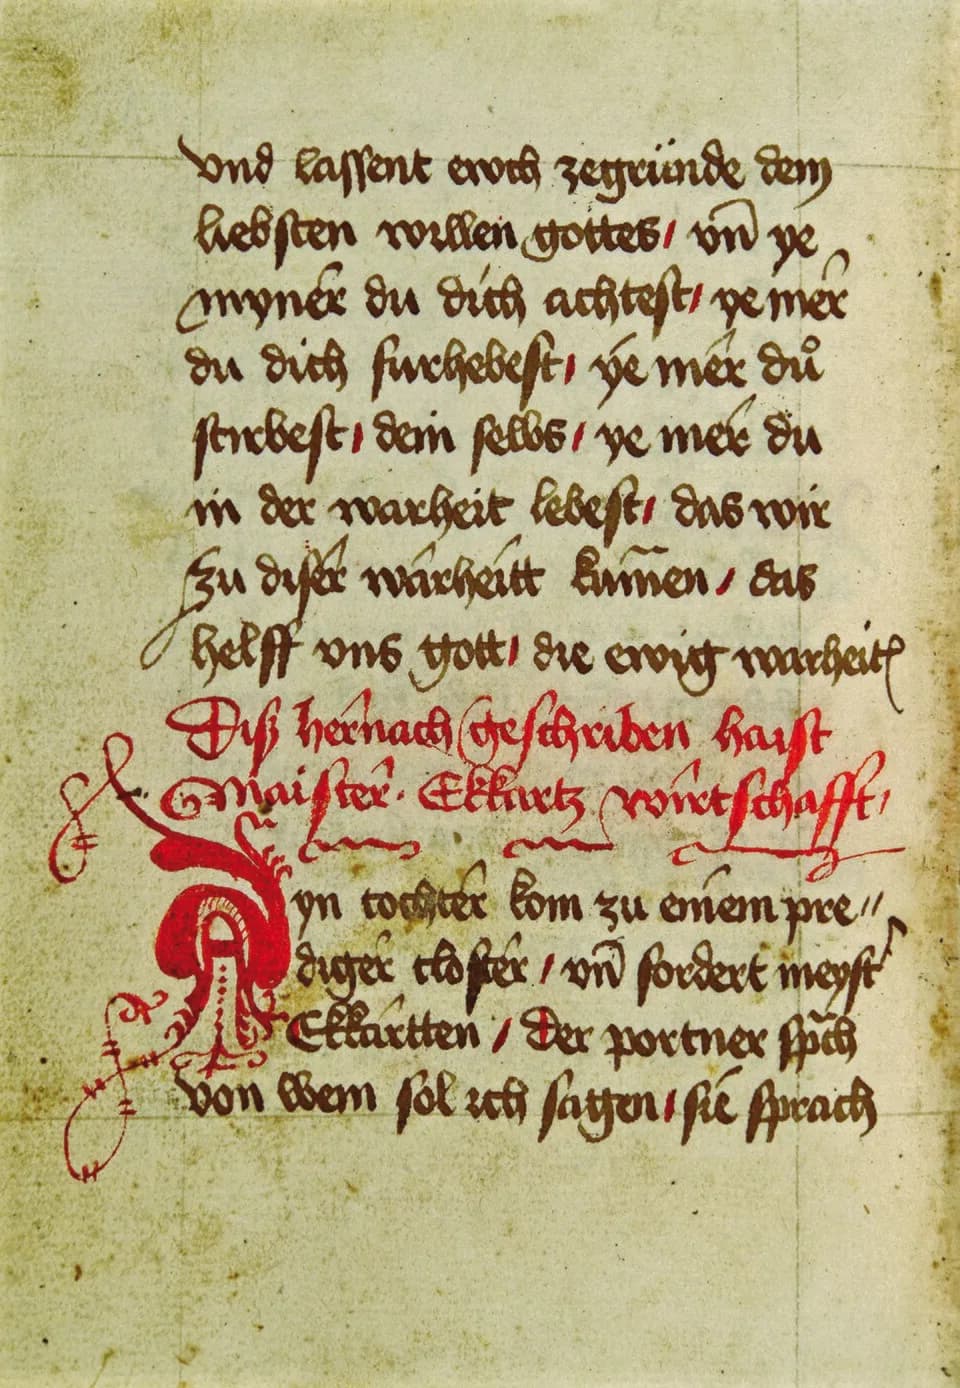 vnd lassent ewch zegründe dem
liebsten willen gottes / vn̄ ye
mynér du dich achtest / ye mér
du dich furhebest / ye mér dů
stirbest / dein selbs / ye mér du
in der warheit lebest / das wir
zu disér warheitt kūmen / das
helff vns gott / die ewig warheit
Diß hérnach geschriben haist
Maistér · Ekkartz wirtschafft /
Ayn tochtér kom zu einem pre〃
digér clostér / vn̄ fordert meyst᾽
Ekkartten / der portner spᷓch
von wem sol ich sagen / sie sprach